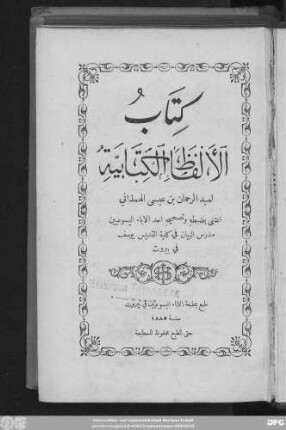 كِتَابُ
الأَلْفَاظِ الْكِتَابِيَّةِ
لعبد الرحمان بن عيسى الهمذاني
اعتنى بضبطه وتصحيحه احد الاباء اليسوعيين
مدرس البيان في كلية القديس يوسف
في بيروت
طبع بمطبعة الاباء اليسوعيين في بيروت
سنة ١٨٨٥
حق الطبع محفوظ للمطبعة
DFG